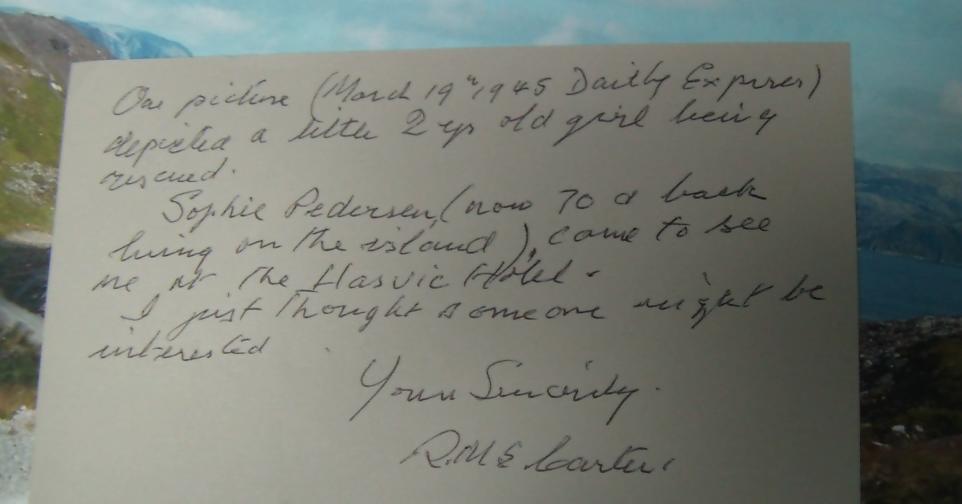 One picture (March 19th 1945 Daily Express)
depicted a little 2 yr old girl being
rescued.
Sophie Pedersen, (now 70 & back
living on the island), came to see
me at the Hasvic Hotel.
I just thought someone might be
interested
Yours Sincerely.
R.M.E Carter.